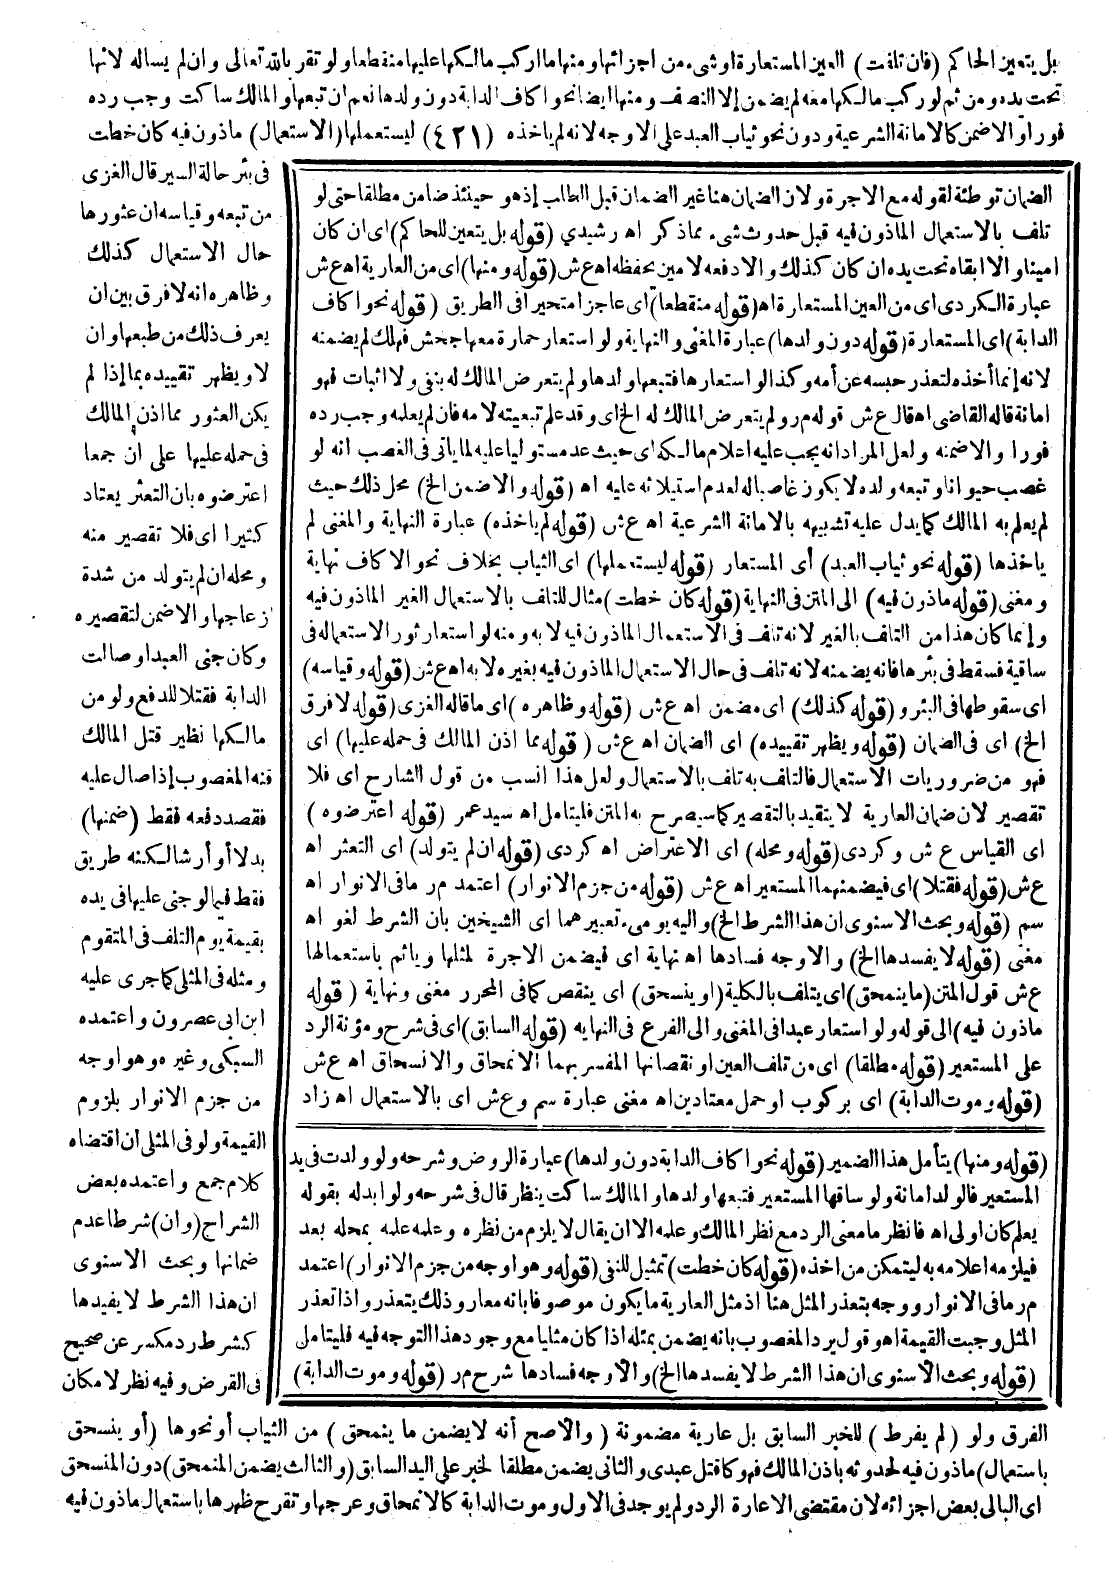 بل يتعين الحاكم (فان تلفت) العين المستعارة او شيء من اجزائها ومنها ما اركب مالكها عليها منقطعا ولو تقربا لله تعالى وان لم يساله لانها
تحت يده ومن ثم لو ركب مالكها معه لم يضمن إلا النصف ومنها ايضا نحو اكاف الدابة دون ولدها نعم ان تبعها والمالك ساكت وجب رده
فورا والا ضمن كالامانة الشرعية ودون نحو ثياب العبد على الاوجه لانه لم ياخذه (٤٢١) ليستعملها (لا باستعمال) ماذون فيه كان خطت
فى بئر حالة السير قال الغزى
من تبعه وقياسه ان عثورها
حال الاستعمال كذلك
وظاهره انه لا فرق بين ان
يعرف ذلك من طبعها وان
لا ويظهر تقييده بما إذا لم
يكن العثور مما اذن المالك
فى حمله عليها على ان جمعا
اعترضوه بان التعثر يعتاد
كثيرا اى فلا تقصير منه
ومحله ان لم يتولد من شدة
ازعاجها والا ضمن لتقصيره
وكان جنى العبد او صالت
الدابة فقتلا للدفع ولو من
مالكها نظير قتل المالك
قنه المغصوب إذا صال عليه
فقصد دفعه فقط (ضمنها)
بدلا أو أرشا لكنه طريق
فقط فيما لو جنى عليها فى يده
بقيمة يوم التلف فى المتقوم
ومثله فى المثلى كما جرى عليه
ابن ابى عصرون واعتمده
السبكى وغيره وهو اوجه
من جزم الانوار بلزوم
القيمة ولو فى المثلى ان اقتضاه
كلام جمع واعتمده بعض
الشراح (وان) شرطا عدم
ضمانها وبحث الاسنوى
ان هذا الشرط لا يفيدها
كشرط رد مكسر عن صحيح
فى القرض وفيه نظر لا مكان
الضمان توطئة لقوله مع الاجرة ولان الضمان هنا غير الضمان قبل الطلب إذ هو حينئذ ضامن مطلقا حتى لو
تلف بالاستعمال الماذون فيه قبل حدوث شىء مما ذكر اه رشيدي (قوله بل يتعين للحاكم) اى ان كان
امينا والا ابقاه تحت يده ان كان كذلك والا دفعه لامين يحفظه اه ع ش (قوله ومنها) اى من العارية اه ع ش
عبارة الكردى اى من العين المستعارة اه (قوله منقطعا) اى عاجزا متحيرا فى الطريق (قوله نحو اكاف
الدابة) اى المستعارة (قوله دون ولدها) عبارة المغنى والنهاية ولو استعار حمارة معها جحش فهلك لم يضمنه
لانه إنما أخذه لتعذر حبسه عن أمه وكذا لو استعارها فتبعها ولدها ولم يتعرض المالك له بنفى ولا اثبات فهو
امانة قاله القاضى اه قال ع ش قوله م ر ولم يتعرض المالك له الخ اى وقد علم تبعيته لامه فان لم يعلمه وجب رده
فورا والا ضمنه ولعل المراد انه يجب عليه اعلام مالكه اى حيث عد مستوليا عليه لما ياتى فى الغصب انه لو
غصب حيوانا وتبعه ولده لا يكون غاصبا له لعدم استيلائه عليه اه (قوله والا ضمن الخ) محل ذلك حيث
لم يعلم به المالك كما يدل عليه تشبيهه بالامانة الشرعية اه ع ش (قوله لم ياخذه) عبارة النهاية والمغنى لم
ياخذها (قوله نحو ثياب العبد) أى المستعار (قوله ليستعملها) اى الثياب بخلاف نحو الاكاف نهاية
ومغنى (قوله ماذون فيه) الى المتن فى النهاية (قوله كان خطت) مثال للتلف بالاستعمال الغير الماذون فيه
وإنما كان هذا من التلف بالغير لانه تلف فى الاستعمال الماذون فيه لا به ومنه لو استعار ثورا لاستعماله فى
ساقية فسقط فى بئرها فانه يضمنه لانه تلف فى حال الاستعمال الماذون فيه بغيره لا به اه ع ش (قوله وقياسه)
اى سقوطها فى البئر و (قوله كذلك) اى مضمن اه ع ش (قوله وظاهره) اى ما قاله الغزى (قوله لا فرق
الخ) اى فى الضمان (قوله ويظهر تقييده) اى الضمان اه ع ش (قوله مما اذن المالك فى حمله عليها) اى
فهو من ضروريات الاستعمال فالتلف به تلف بالاستعمال ولعل هذا انسب من قول الشارح اى فلا
تقصير لان ضمان العارية لا يتقيد بالتقصير كما سيصرح به المتن فليتامل اه سيد عمر (قوله اعترضوه)
اى القياس ع ش وكردى (قوله ومحله) اى الاعتراض اه كردى (قوله ان لم يتولد) اى التعثر اه
ع ش (قوله فقتلا) اى فيضمنهما المستعير اه ع ش (قوله من جزم الانوار) اعتمد م ر ما فى الانوار اه
سم (قوله وبحث الاسنوى ان هذا الشرط الخ) واليه يومىء تعبيرهما اى الشيخين بان الشرط لغو اه
مغنى (قوله لا يفسدها الخ) والاوجه فسادها اه نهاية اى فيضمن الاجرة لمثلها وياثم باستعمالها
ع ش قول المتن (ما ينمحق) اى يتلف بالكلية (او ينسحق) اى ينقص كما فى المحرر مغنى ونهاية (قوله
ماذون فيه) الى قوله ولو استعار عبدا فى المغنى والى الفرع فى النهايه (قوله السابق) اى فى شرح ومؤنة الرد
على المستعير (قوله مطلقا) اى من تلف العين او نقصانها المفسر بهما الانمحاق والانسحاق اه ع ش
(قوله وموت الدابة) اى بركوب او حمل معتادين اه مغنى عبارة سم وع ش اى بالاستعمال اه زاد
(قوله ومنها) يتأمل هذا الضمير (قوله نحو اكاف الدابة دون ولدها) عبارة الروض وشرحه ولو ولدت فى يد
المستعير فالولد امانة ولو ساقها المستعير فتبعها ولدها والمالك ساكت ينظر قال فى شرحه ولو ابدله بقوله
يعلم كان اولى اه فانظر ما معنى الرد مع نظر المالك وعلمه الا ان يقال لا يلزم من نظره وعلمه علمه بمحله بعد
فيلزمه اعلامه به ليتمكن من اخذه (قوله كان خطت) تمثيل للنفى (قوله وهو اوجه من جزم الانوار) اعتمد
م ر ما فى الانوار ووجه بتعذر المثل هنا اذ مثل العارية ما يكون موصوفا بانه معار وذلك يتعذر واذا تعذر
المثل وجبت القيمة اه وقول يرد المغصوب بانه يضمن بمثله اذا كان مثليا مع وجود هذا التوجه فيه فليتامل
(قوله وبحث الأسنوى ان هذا الشرط لا يفسدها الخ) والأوجه فسادها شرح م ر (قوله وموت الدابة)
الفرق ولو (لم يفرط) للخبر السابق بل عارية مضمونة (والأصح أنه لا يضمن ما ينمحق) من الثياب أو نحوها (أو ينسحق
باستعمال) ماذون فيه لحدوثه باذن المالك فهو كاقتل عبدى والثانى يضمن مطلقا لخبر على اليد السابق (والثالث يضمن المنمحق) دون المنسحق
اى البالى بعض اجزائه لان مقتضى الاعارة الرد ولم يوجد فى الاول وموت الدابة كالانمحاق وعرجها وتقرح ظهرها باستعمال ماذون فيه